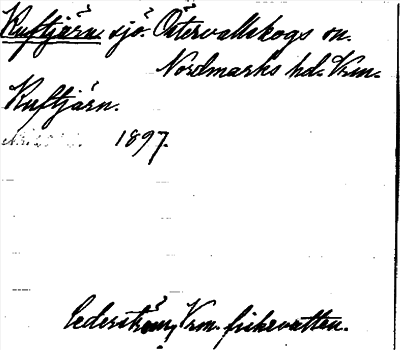 Kuftjärn, sjö. Östervallskogs sn.
Nordmarks hd. Vrm.
Kuftjärn.
1897.
Cederström, Vrm. fiskevatten.